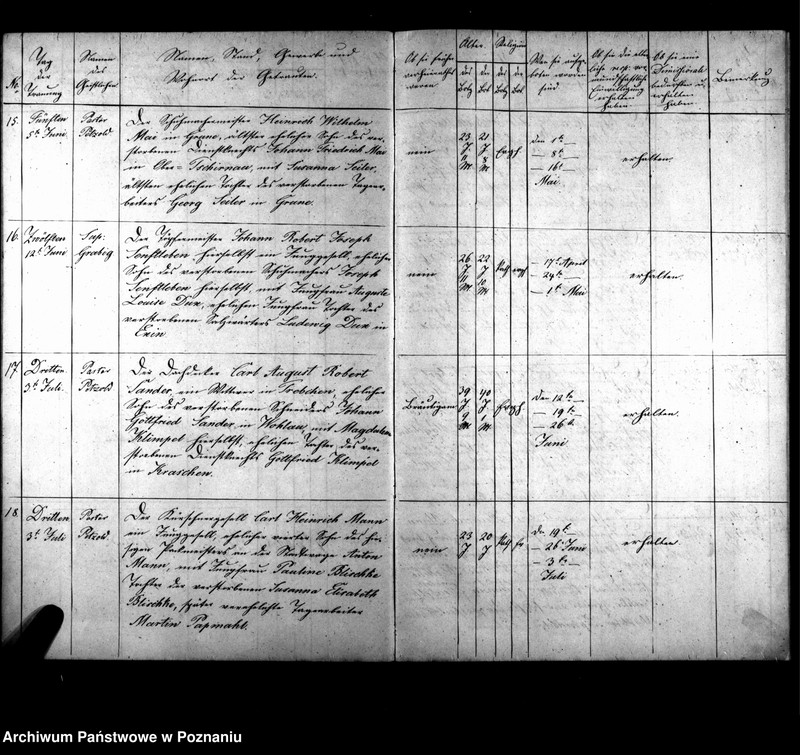 No.
Tag
der
Trauung
Namen
des
Geistlichen
Namen, Stand, Gewerbe und
Wohnort der Getrauten.
Ob sie früher
verheirathet
waren
Alter
des
der
Religion
des
der
Wo sie aufge-
boten worden
sind
Ob sie eine
Dimissoriale
bedurften u.
erhalten
haben.
Bemerkung
15.
Fünften
5t Juni
Pastor
Petzold
Der Schuhmachermeister Heinrich Wilhelm
Mai in Grune, ältster ehelicher Sohn des ver-
storbenen Dienstknechts Johann Friedrich Mai
in Ober-Tschirnau, mit Susanna Seiler,
ältsten ehelichen Tochter des verstorbenen Tagear-
beiters Georg Seiler in Grune.
nein
23
J
21
J
8
M
den 1t
8t
16t
Mai.
erhalten.
16.
Zwölften
12t Juni
Sup.
Grabig
Der Töpfermeister Johann Robert Joseph
Senftleben hierselbst ein Junggesell, ehelicher
Sohn des verstorbenen Schuhmachers Joseph
Senftleben hierselbst, mit Jungfrau Auguste
Louise Dux, ehelichen Jungfrau Tochter des
verstorbenen Salzwärters Ludewig Dux in
Exin
nein
26
J
22
J
10
M
17t April
24t
1t Mai
erhalten.
17.
Dritten
3t Juli.
Pastor
Petzold
Der Dachdecker Carl August Robert
Sander, ein Wittwer in Trebchen, ehelicher
Sohn des verstorbenen Schneiders Johann
Gottfried Sander in Wohlau, mit Magdalena
Klimpel hierselbst, ehelichen Tochter des ver-
storbenen Dienstknechts Gottfried Klimpel
in Kraschen.
Bräutigam
39
J
9
M
40
J
1
M
den 12t
19t
26t
Juni
erhalten.
18
Dritten
3t Juli
Pastor
Petzold
Der Kürschnergesell Carl Heinrich Mann
ein Junggesell, ehelicher vierter Sohn des hie-
sigen Packmeisters an der Stadtwage Anton
Mann, mit Jungfrau Pauline Blischke
Tochter der verstorbenen Susanna Elisabeth
Blischke, später verehelichte Tagearbeiter
Martin Papmahl.
nein
23
J
20
J
den 19t
26t Juni
3t
Juli
erhalten
Archiwum Państwowe w Poznaniu